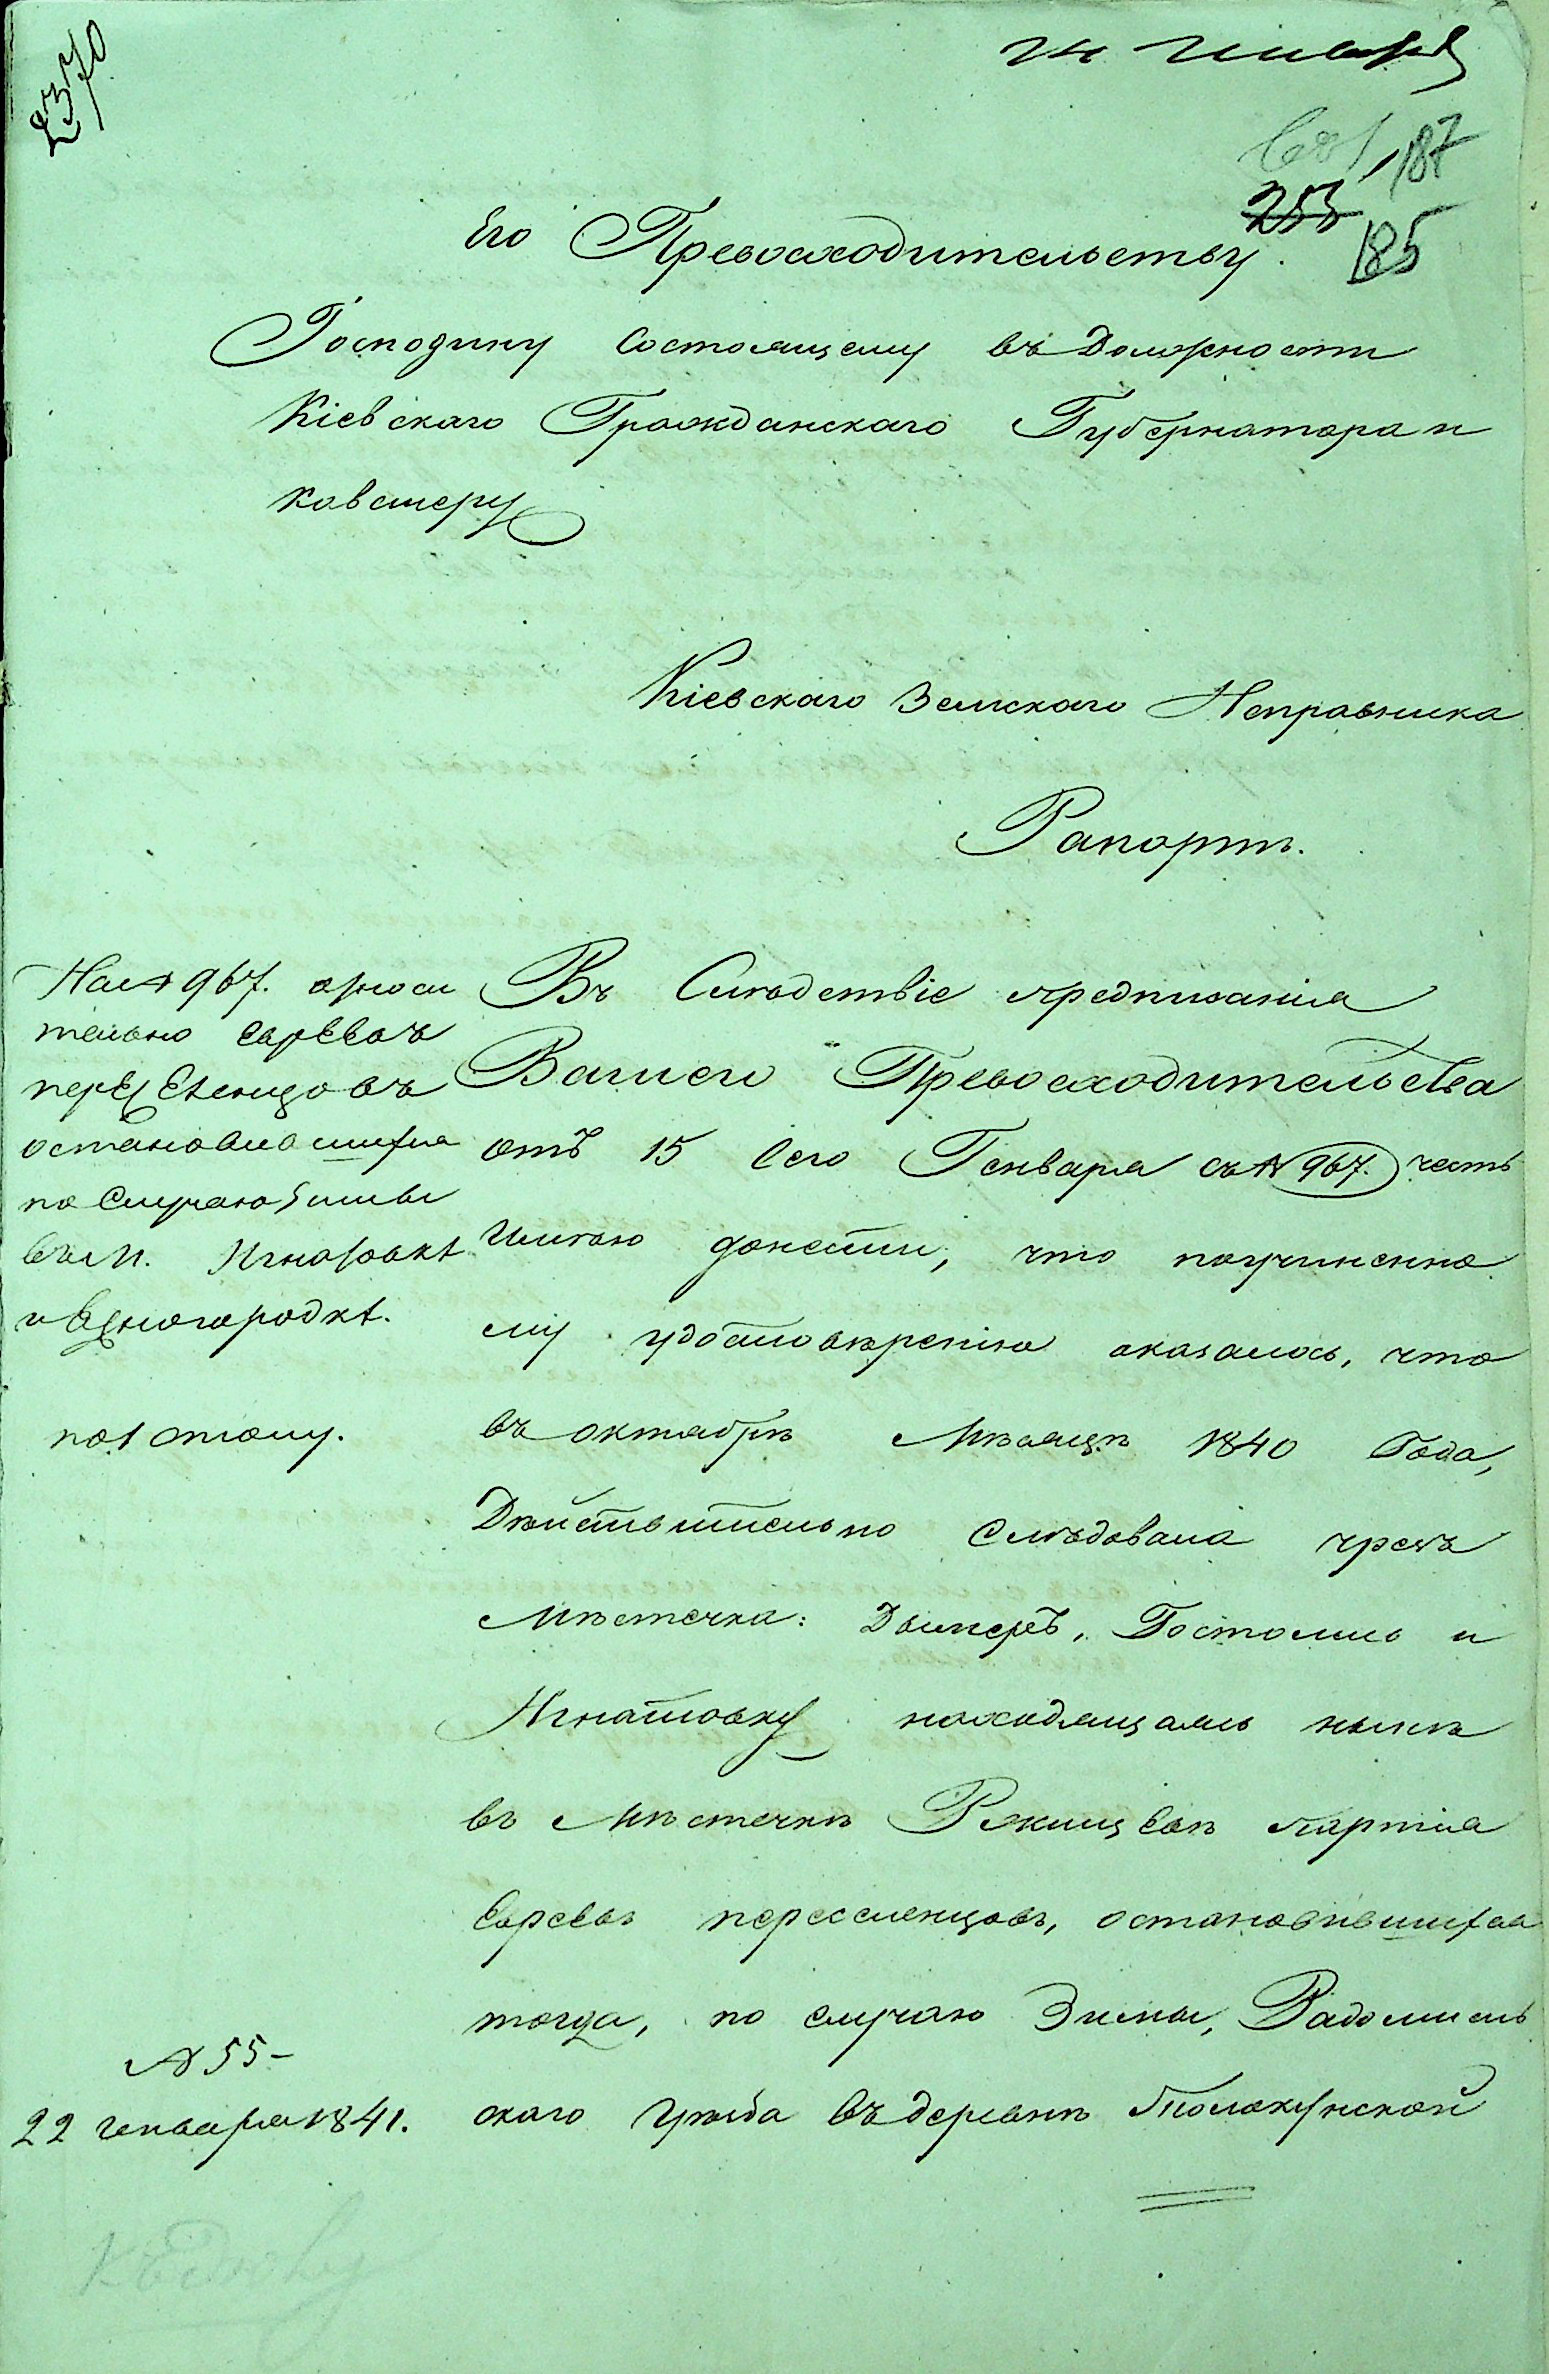 2370
24 Генваря
187
253
185
Его Превосходительству.
Господину Состоящему въ Должности
Кіевскаго Гражданскаго Губернатора и
Кавалеру
Кіевскаго Земскаго Исправника
Рапортъ.
Въ Слѣдствіе предписанія
Вашего Превосходительства
отъ 15 Сего Генваря съ № 967. честь
Имѣю донести, что поучиненно
му удостовѣренію оказалось, что
въ октябрѣ Мѣсяцѣ 1840 Года,
Дѣйствительно Слѣдовала чрезъ
Мѣстечка: Дымеръ, Гостомль и
Игнатовку находящаясь нынѣ
въ Мѣстечкѣ Ржищевѣ партія
Евреевъ переселенцовъ, остановившихся
тогда, по случаю Зимы, Радомысль
скаго Уѣзда въ деревнѣ Толокунской
На № 967. относи
тельно Евреевъ
переселенцовъ
остановившихся
по Случаю Зимы
въ М. Игнатовкѣ
и Бѣлогородкѣ.
по 1 столу.
№ 55-
22 генваря 1841.